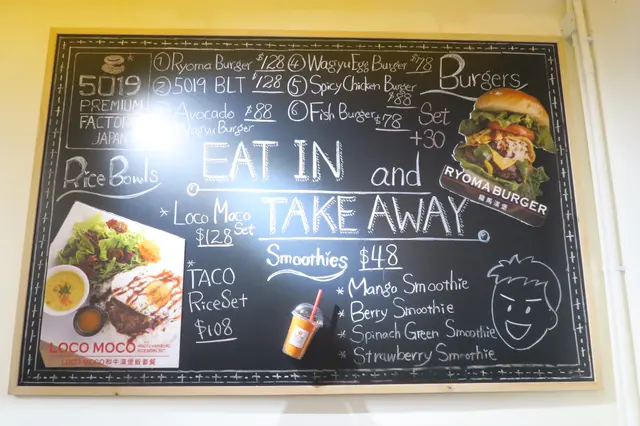 5019
PREMIUM
FACTORY
JAPAN
① Ryoma Burger $128
② 5019 BLT $128
Avocado $88
Wagyu Burger
④ Wagyu Egg Burger $78
⑤ Spicy Chicken Burger
$88
⑥ Fish Burger $78
Burgers
Set
+30
RYOMA BURGER
龍馬漢堡
EAT IN and
TAKE AWAY
Rice Bowls
* Loco Moco Set
$128
* TACO
Rice Set
$108
LOCO MOCO
LOCO MOCO和牛漢堡飯套餐
Smoothies $48
* Mango Smoothie
* Berry Smoothie
* Spinach Green Smoothie
* Strawberry Smoothie